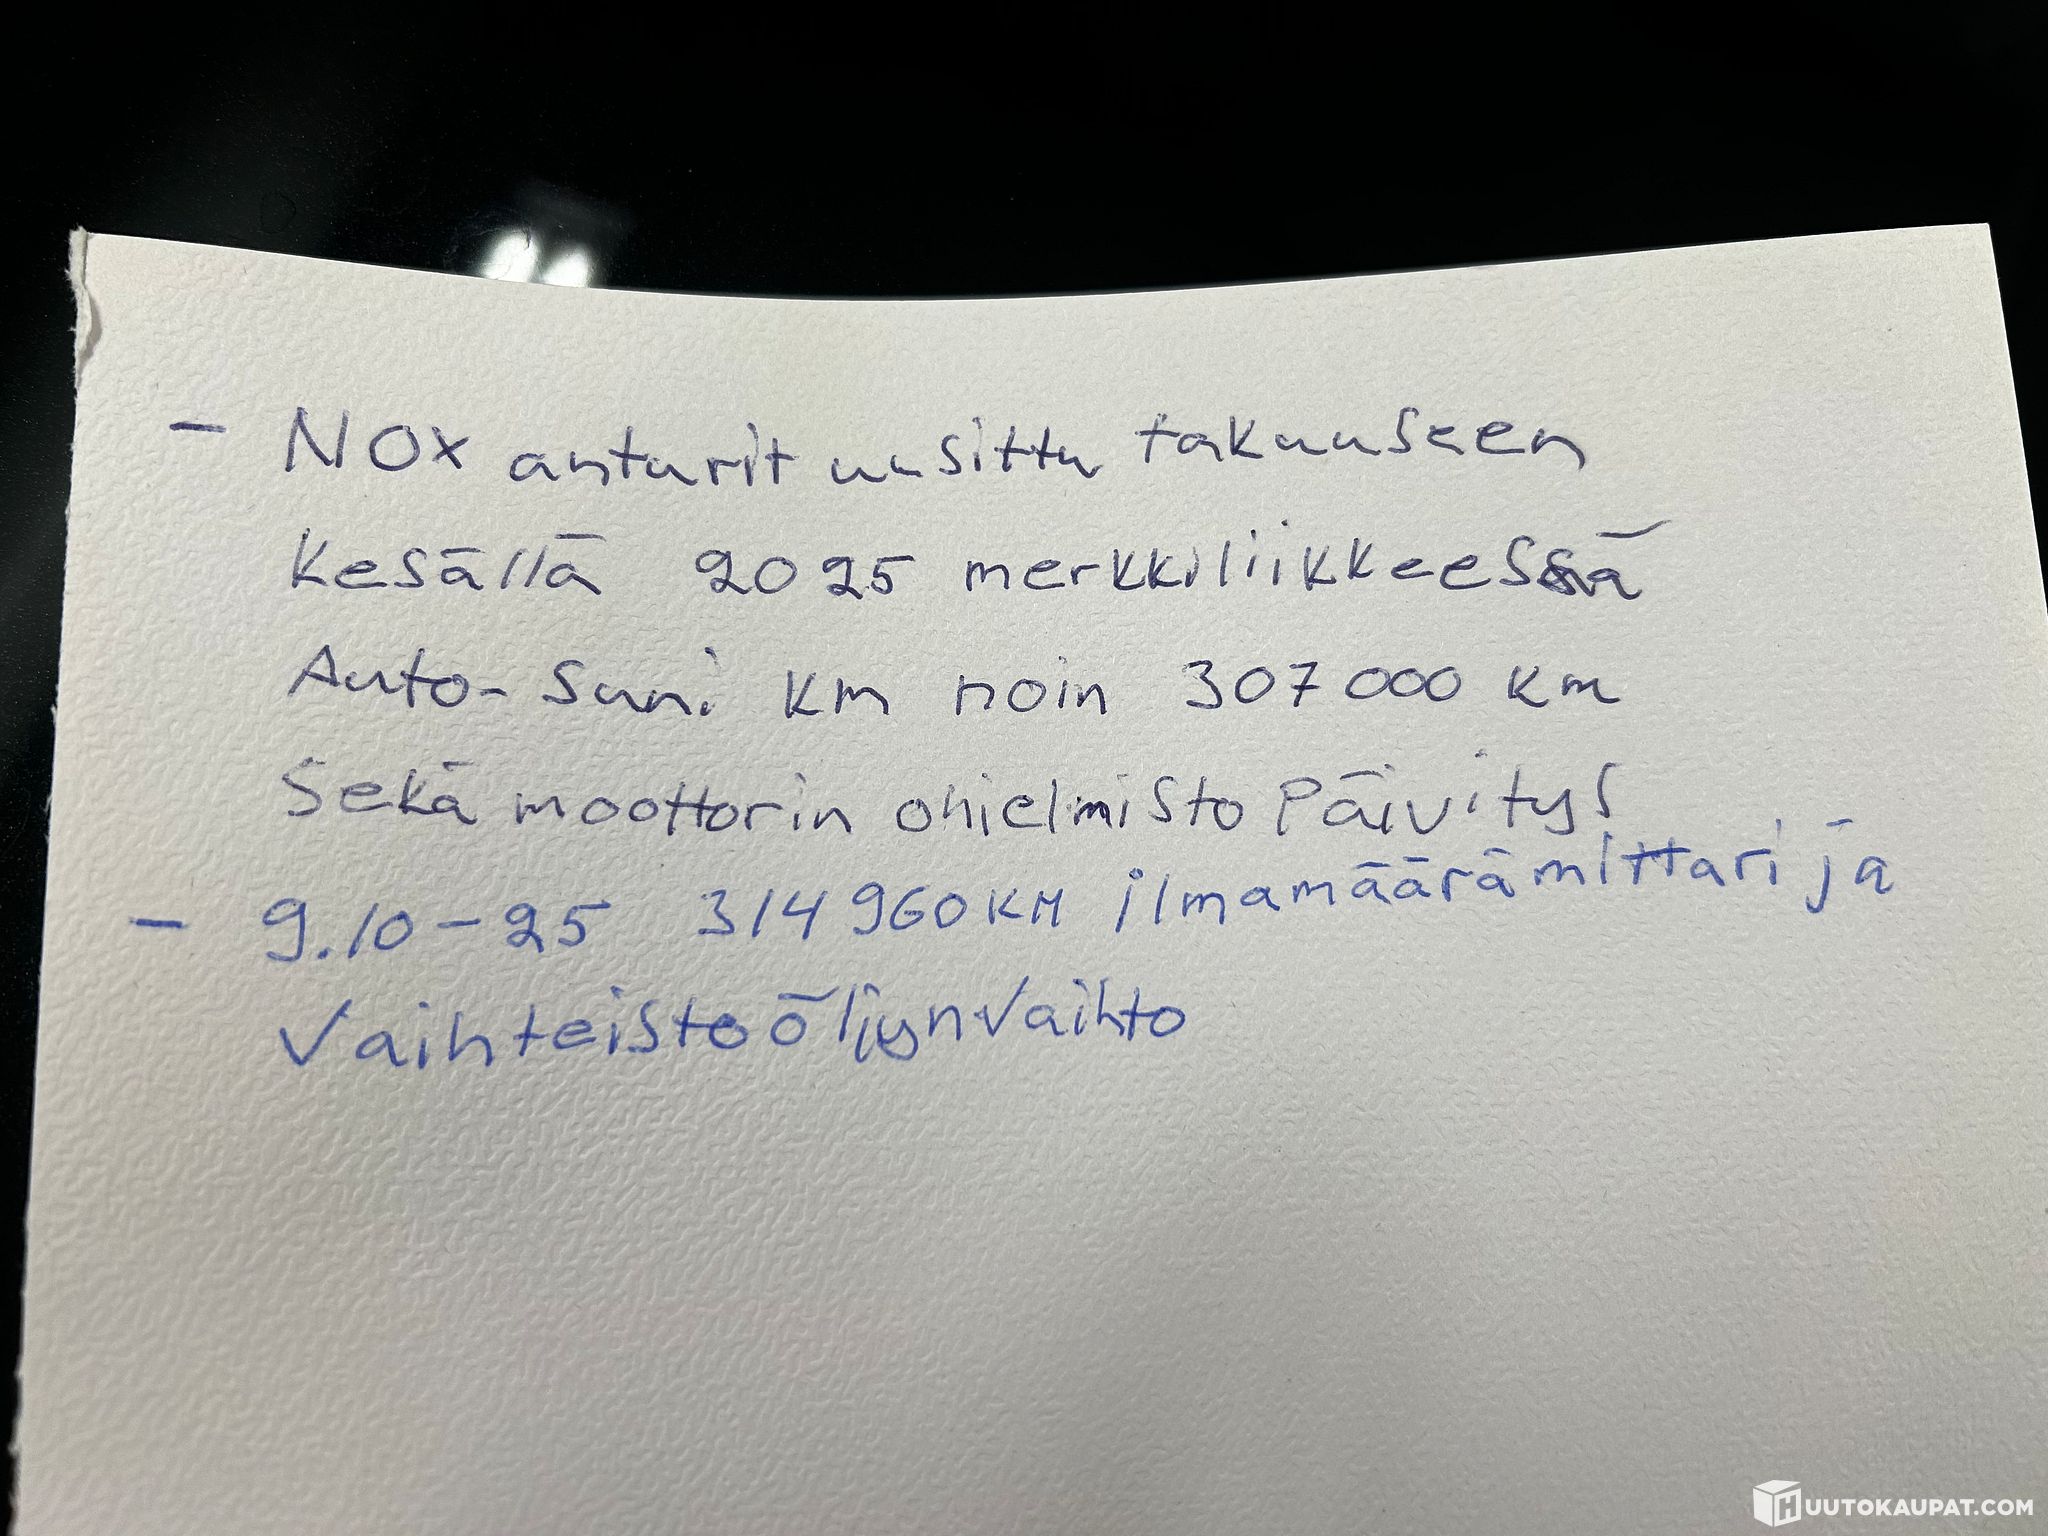 - NOX anturit uusittu takuuseen
kesällä 2025 merkkiliikkeessä
Auto-Suni km noin 307 000 km
Sekä moottorin ohjelmisto päivitys
- 9.10-25 314 960 KM ilmamäärämittari ja
Vaihteistoöljynvaihto
HUUTOKAUPAT.COM